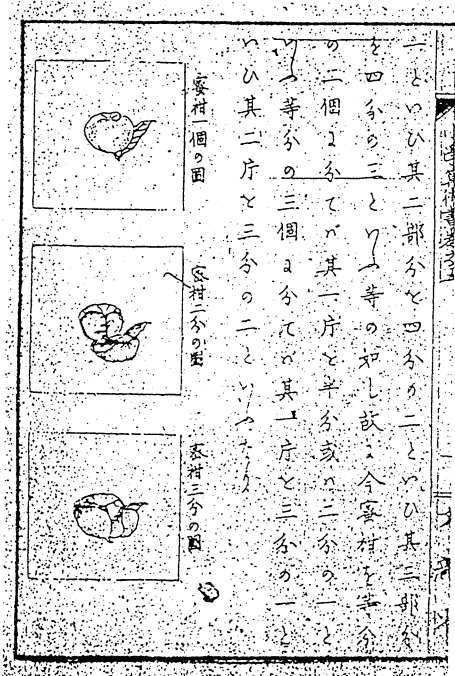 一といひ其二部分を四分の二といひ其三部分
を四分の三といふ等の如し故に今蜜柑を等分
の二個に分てバ其一片を半分或ハ二分の一と
いふ等分の三個に分てバ其一片を三分の一と
いひ其二片を三分の二といふなり
蜜柑一個の図
蜜柑二分の図
蜜柑三分の図